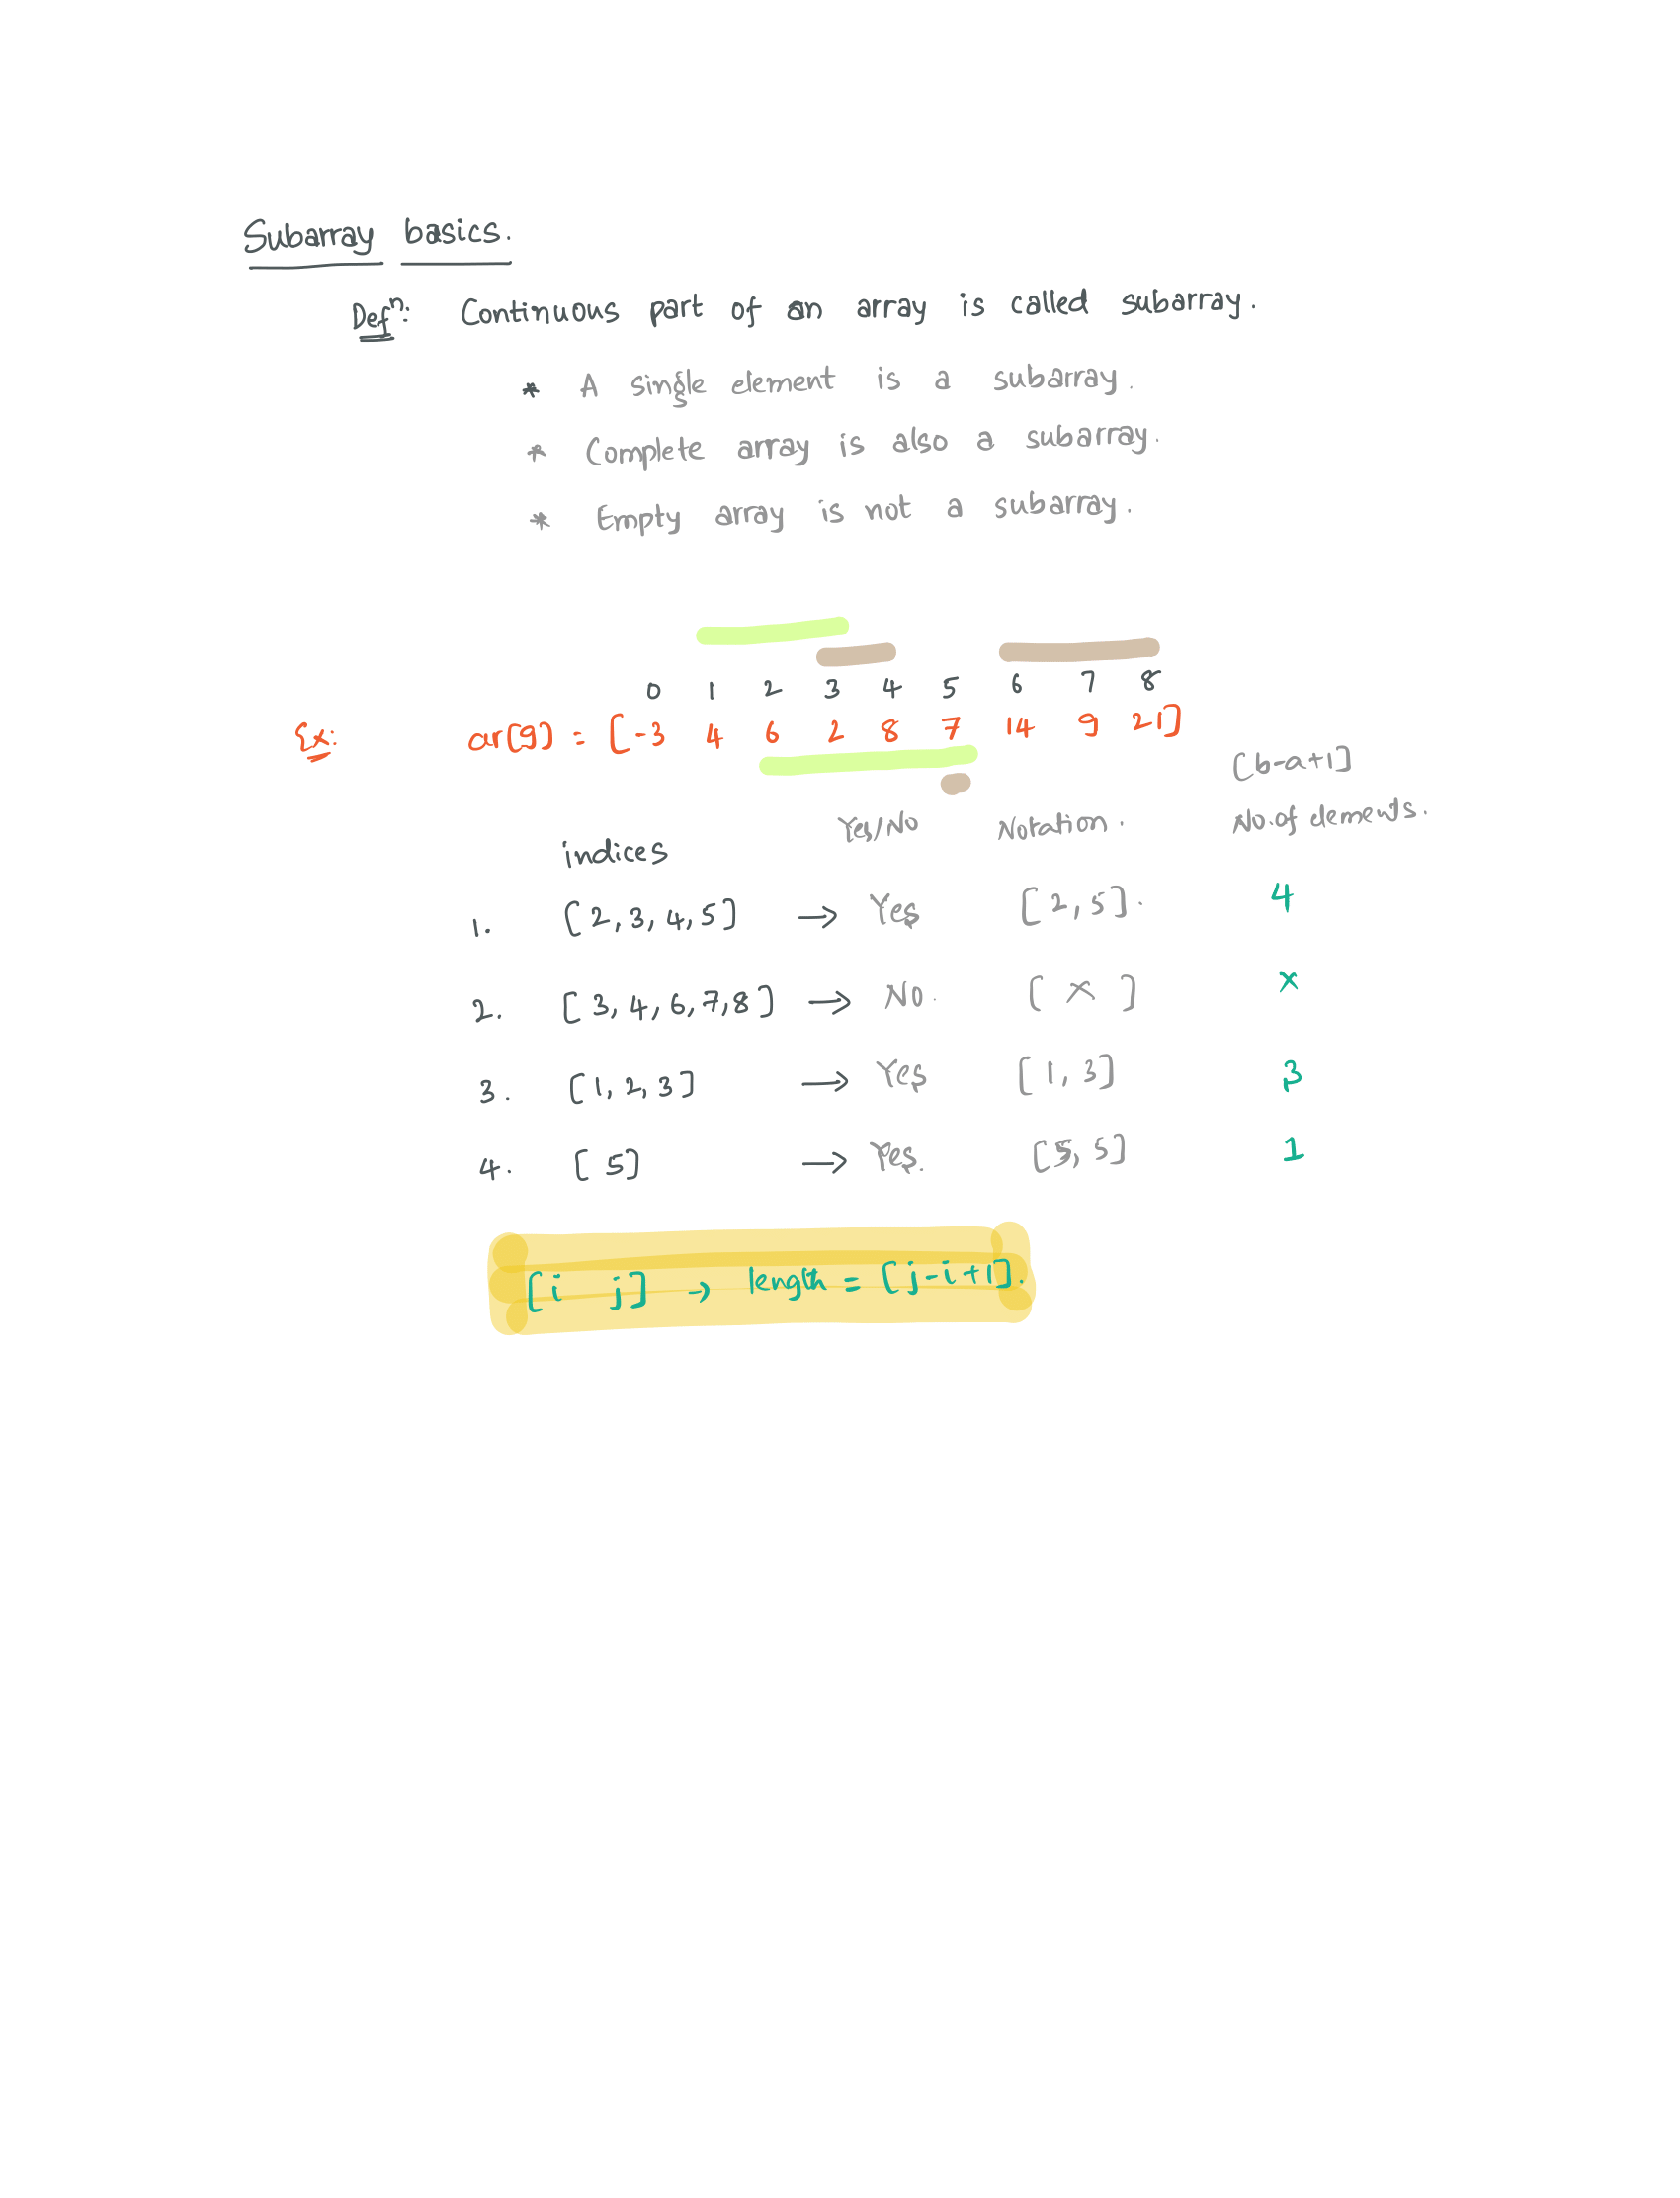 Subarray basics.
Defⁿ: Continuous part of an array is called subarray.
* A single element is a subarray.
* Complete array is also a subarray.
* Empty array is not a subarray.
0 1 2 3 4 5 6 7 8
Ex: ar[9] = [-3 4 6 2 8 7 14 9 21]
[b-a+1]
indices Yes/No Notation. No.of elements.
1. [2,3,4,5] → Yes [2,5]. 4
2. [3,4,6,7,8] → No. [ x ] x
3. [1,2,3] → Yes [1,3] 3
4. [5] → Yes. [5,5] 1
[i j] → length = [j-i+1].